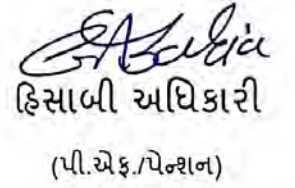 હિસાબી અધિકારી
(પી.એફ./પેન્શન)